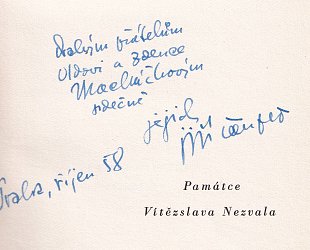 Drahým přátelům
Oldovi a Zdence
Macháčkovým
srdečně
jejich
Jiří Taufer
Praha, říjen 58
Památce
Vítězslava Nezvala